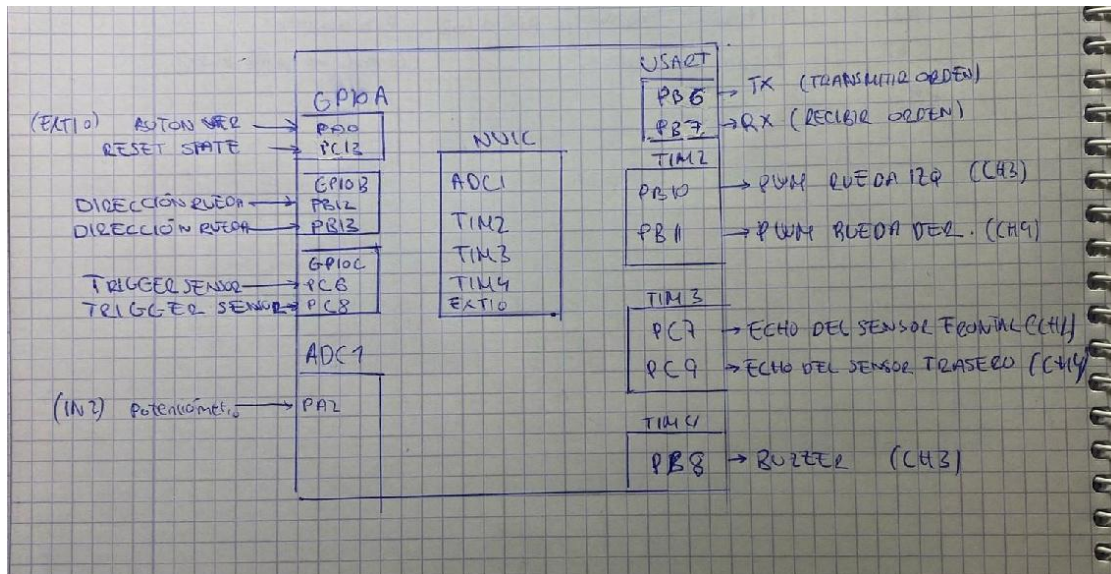 GPIOA
(EXTI0) BUTON
PA0
RESET STATE
PC13
GPIOB
DIRECCIÓN RUEDA
PB12
DIRECCIÓN RUEDA
PB13
GPIOC
TRIGGER SENSOR
PC6
TRIGGER SENSOR
PC8
ADC1
(IN2) Potenciómetro
PA2
NVIC
ADC1
TIM2
TIM3
TIM4
EXTI0
USART
PB6 TX (TRANSMITIR ORDEN)
PB7 RX (RECIBIR ORDEN)
TIM2
PB10 PWM RUEDA IZQ (CH3)
PB11 PWM RUEDA DER. (CH4)
TIM3
PC7 ECHO DEL SENSOR FRONTAL
PC9 ECHO DEL SENSOR TRASERO (CH4)
TIM4
PB8 BUZZER (CH3)